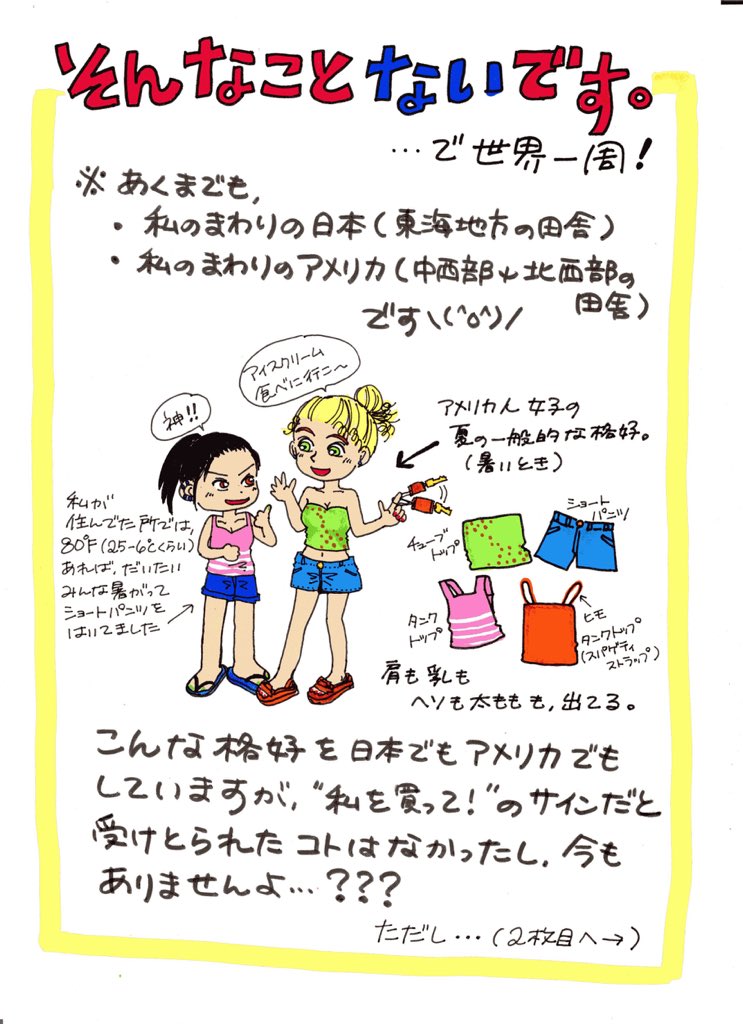 そんなことないです。
…で世界一周!
※あくまでも,
・私のまわりの日本(東海地方の田舎)
・私のまわりのアメリカ(中西部や北西部の
田舎)
です\(^o^)/
アイスクリーム
食べに行こ〜
神!!
アメリカ人女子の
夏の一般的な格好。
(暑いとき)
私が
住んでた所では,
80°F(25-6℃くらい)
あれば,だいたい
みんな暑がって
ショートパンツを
はいてました
チューブ
トップ
ショート
パンツ
タンク
トップ
ヒモ
タンクトップ
(スパゲティ
ストラップ)
肩も乳も
ヘソも太ももも,出てる。
こんな格好を日本でもアメリカでも
していますが,“私を買って!”のサインだと
受けとられたコトはなかったし,今も
ありませんよ…???
ただし…(2枚目へ→)